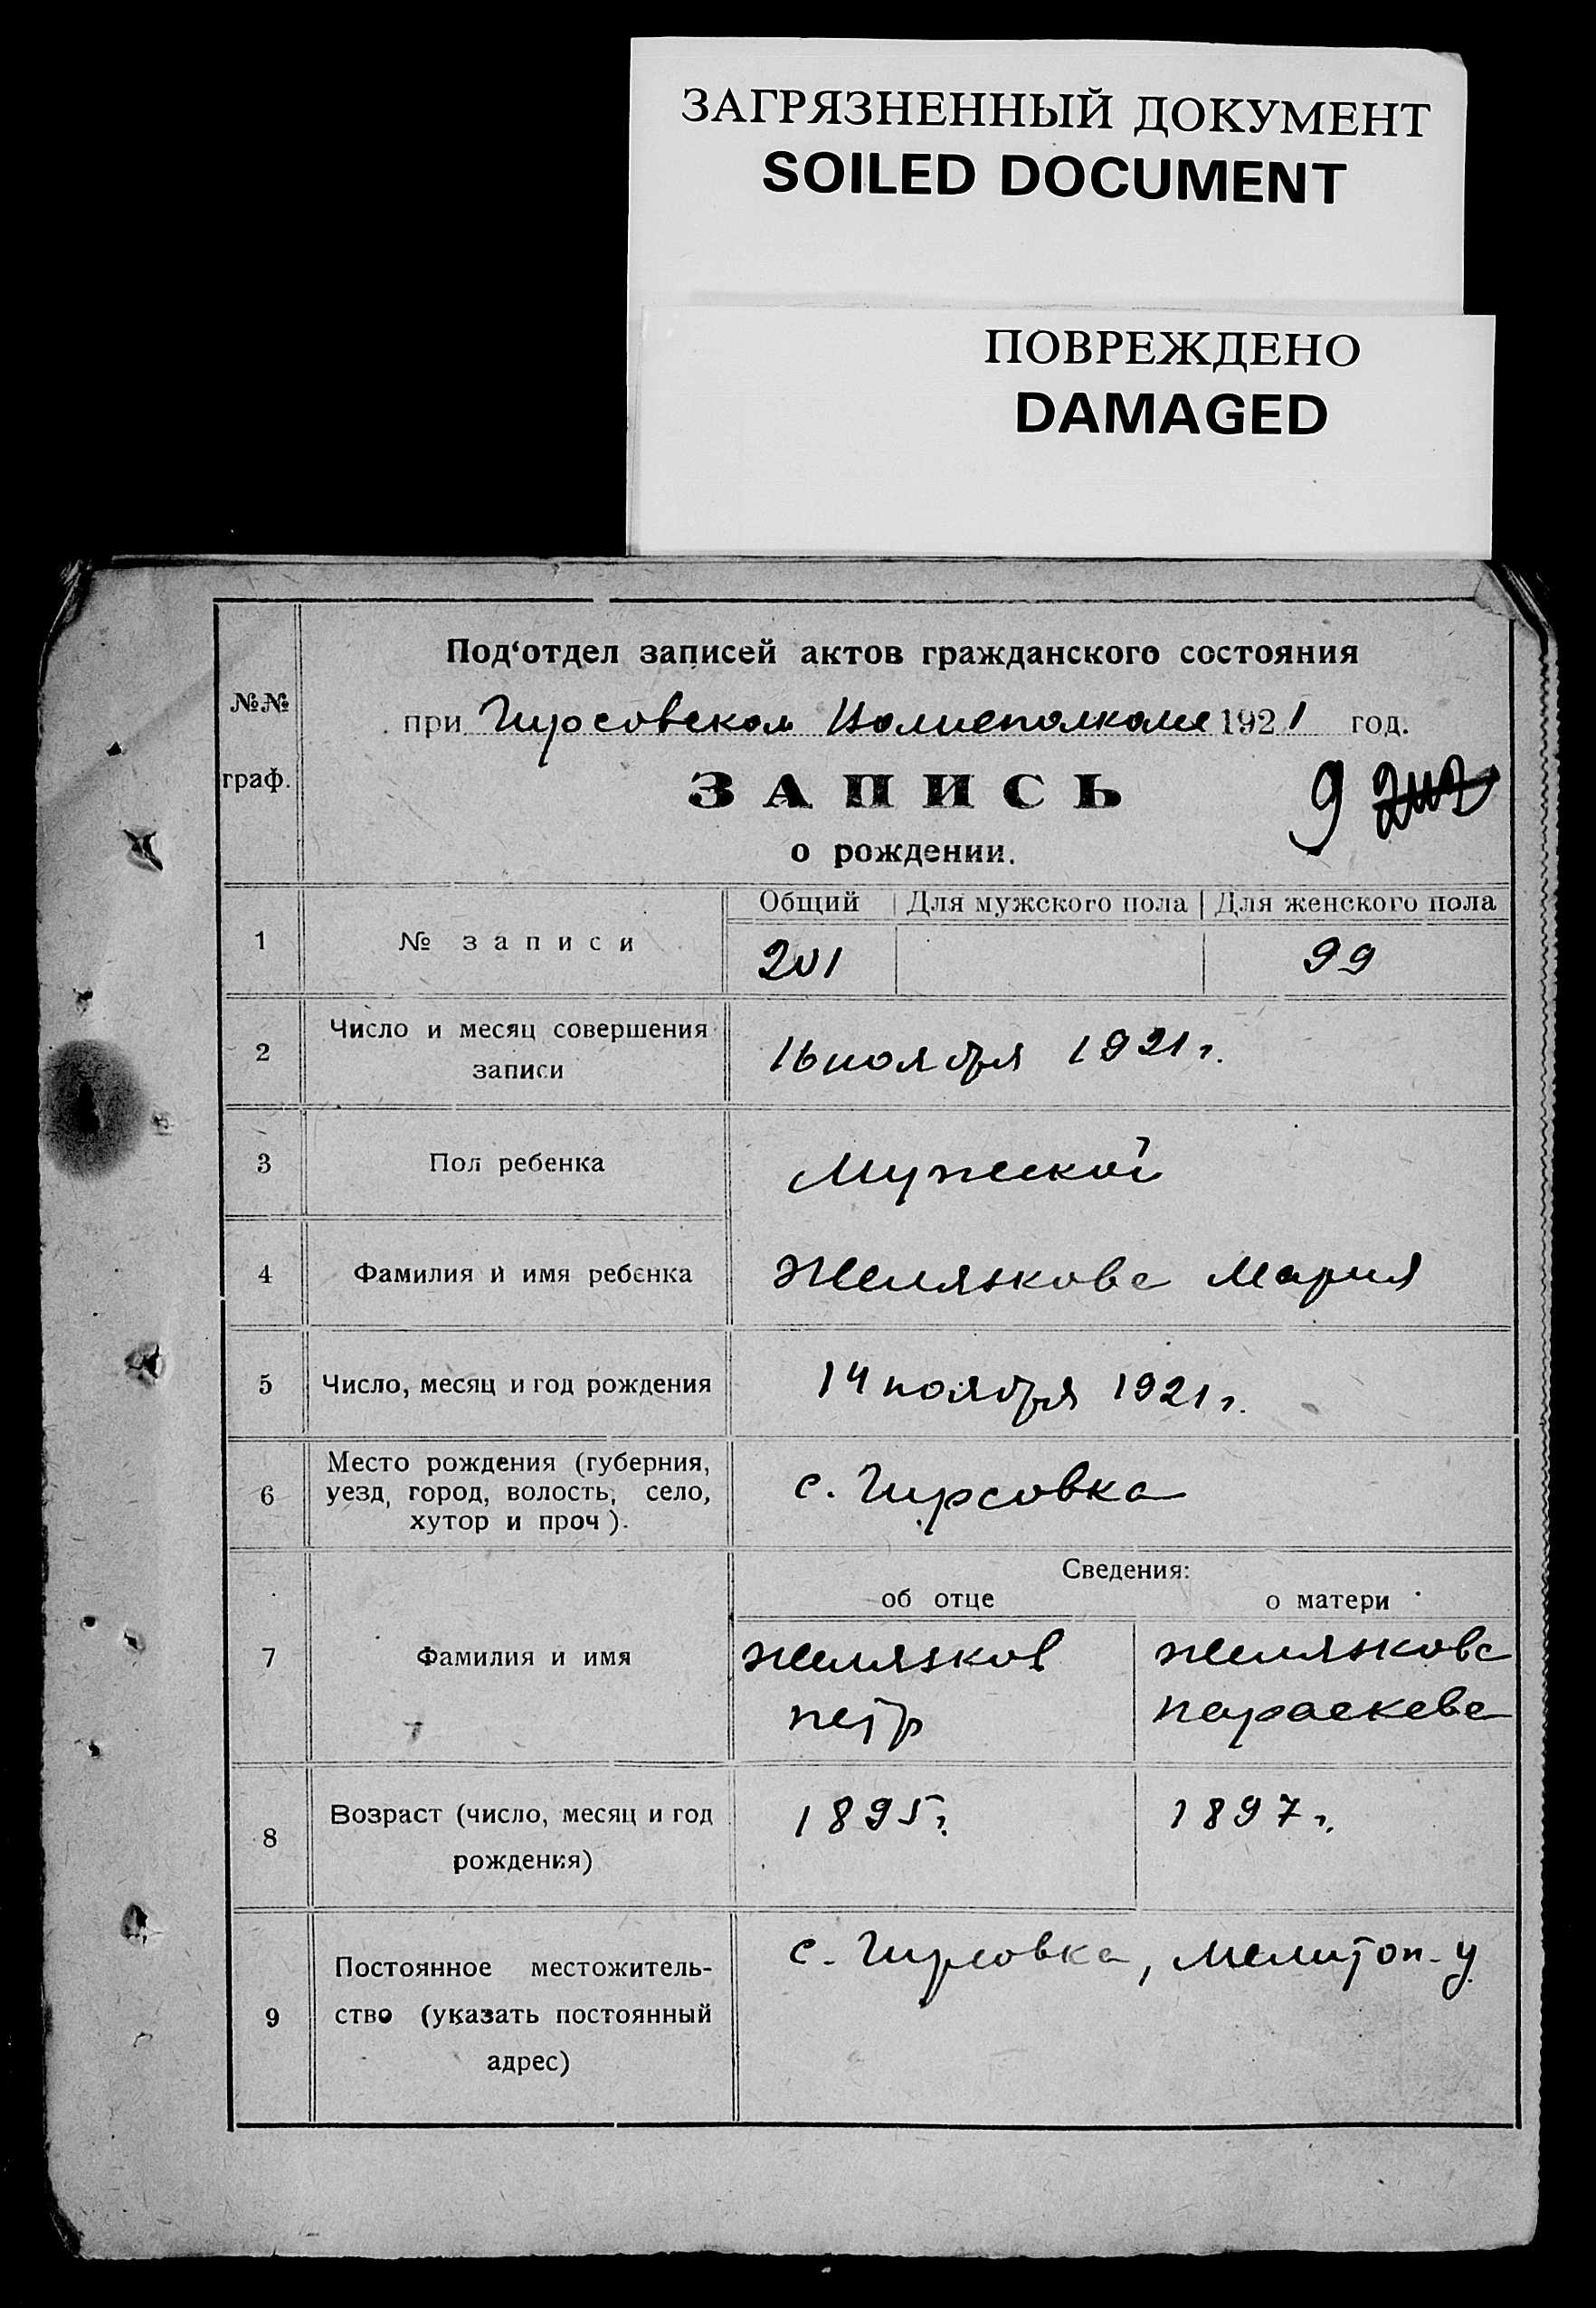 ЗАГРЯЗНЕННЫЙ ДОКУМЕНТ
SOILED DOCUMENT
ПОВРЕЖДЕНО
DAMAGED
№№
граф.
Под‘отдел записей актов гражданского состояния
при Гирсовском Волисполкоме 1921 год.
ЗАПИСЬ
9
о рождении.
Общий Для мужского пола Для женского пола
1 № записи 201 99
2 Число и месяц совершения
записи
16 ноября 1921 г.
3 Пол ребенка Мужской
4 Фамилия и имя ребенка Желязкова Мария
5 Число, месяц и год рождения 14 ноября 1921 г.
6 Место рождения (губерния,
уезд, город, волость, село,
хутор и проч).
с. Гирсовка
Сведения:
об отце о матери
7 Фамилия и имя
Желязков
Петр
Желязкова
Параскева
8 Возраст (число, месяц и год
рождения)
1895 г. 1897 г.
9 Постоянное местожитель-
ство (указать постоянный
адрес)
с. Гирсовка, Мелитоп. у